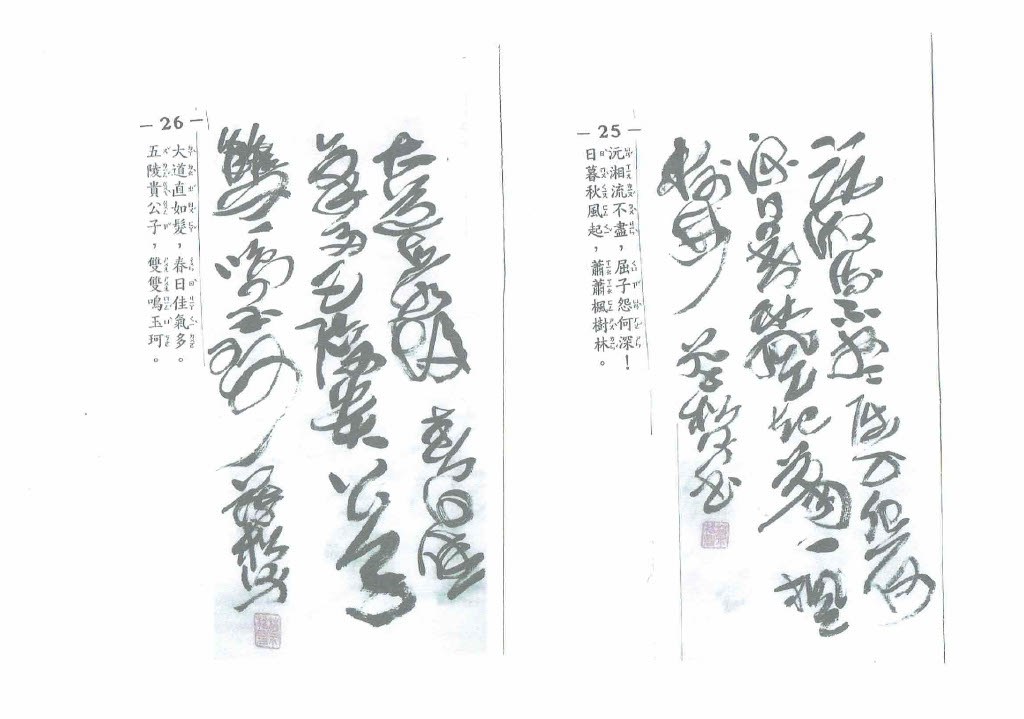 — 25 —
沅湘流不盡，屈子怨何深！
日暮秋風起，蕭蕭楓樹林。
沅湘流不盡屈子怨何
深日暮秋風起蕭蕭楓
樹林
— 26 —
大道直如髮，春日佳氣多。
五陵貴公子，雙雙鳴玉珂。
大道直如髮春日佳
氣多五陵貴公子
雙雙鳴玉珂